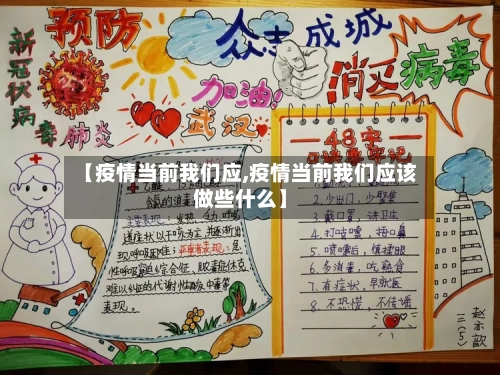 预防
新冠状病毒肺炎
众志成城
消灭病毒
加油!
武汉
【疫情当前我们应,疫情当前我们应该
做些什么】
48字
2.少出门,少聚集
3.戴口罩,讲卫生
4.打喷嚏,捂口鼻
5.喷嚏后,慎揉眼
6.多消毒,吃熟食
7.有症状,早就医
8.不恐慌,不传谣
主要表现:发热、
道症状以干咳为主,并逐渐出
现呼吸困难;严重者表现:急
性呼吸窘迫综合征、脓毒症休克
难以纠正的代谢性酸中毒等
表现。
三(5)